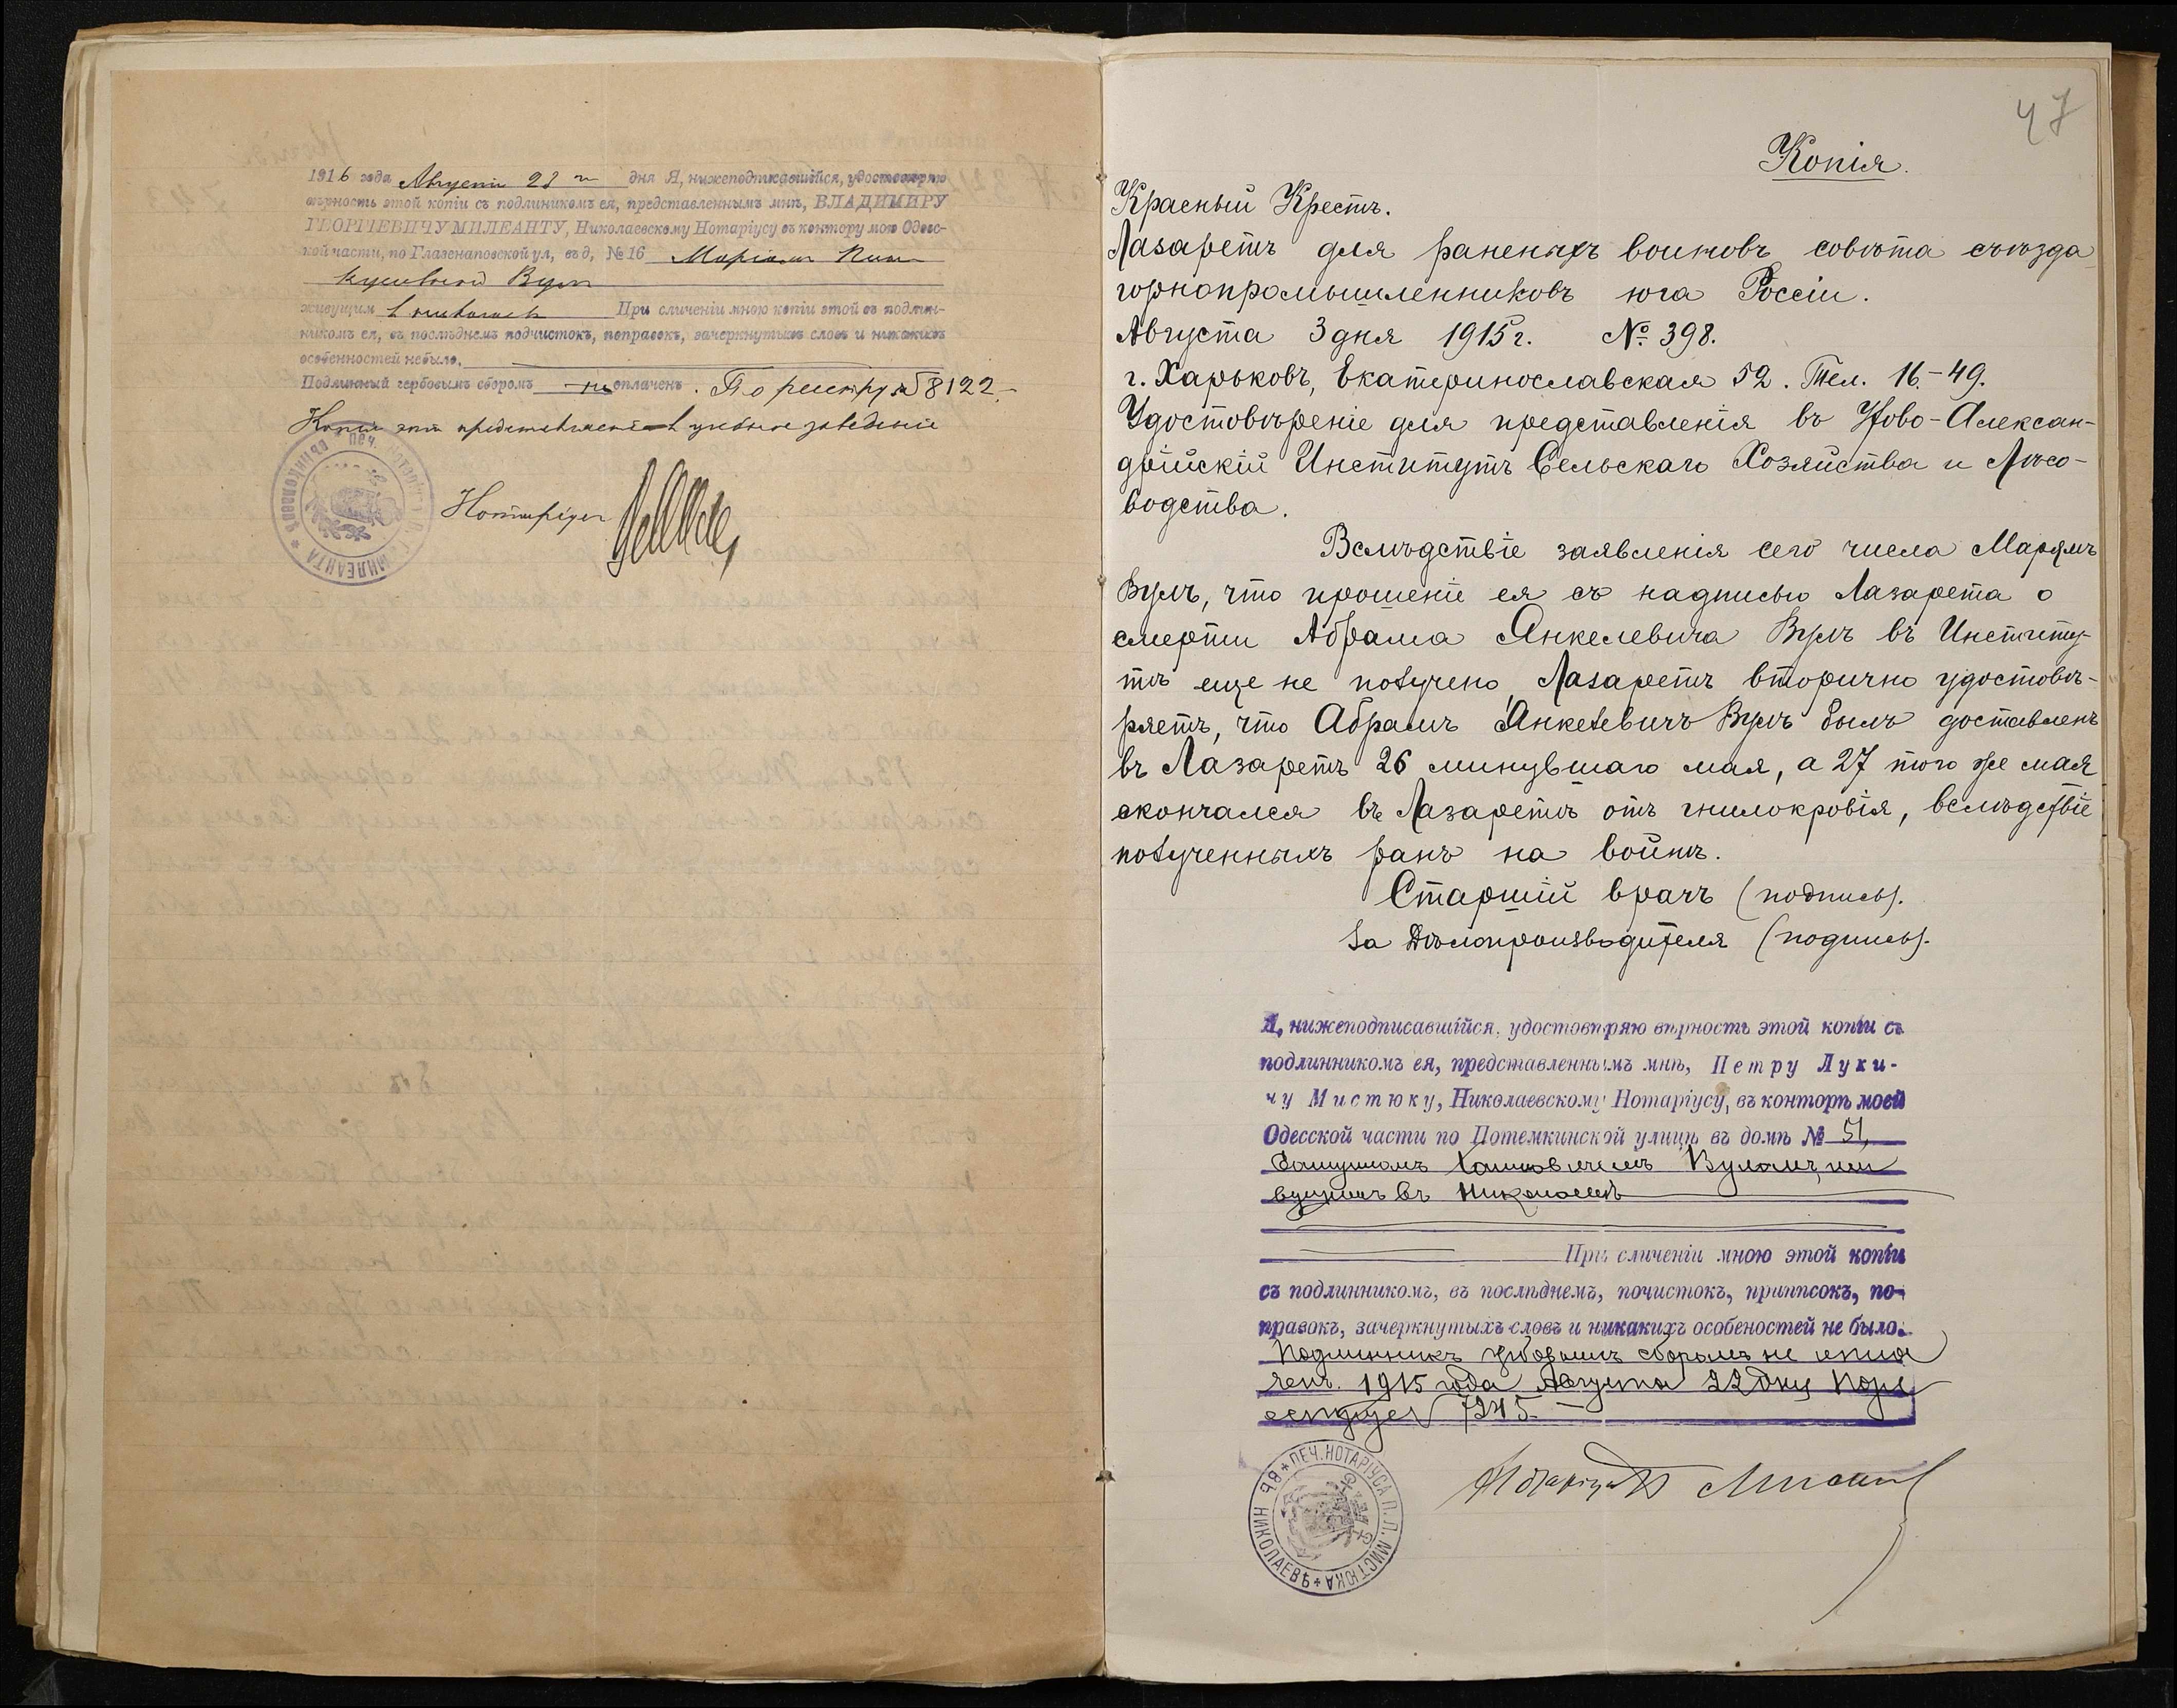 1916 года Августа 28 дня Я, нижеподписавшійся, удостовѣряю
вѣрность этой копіи съ подлиникомъ ея, представленнымъ мнѣ, ВЛАДИМИРУ
ГЕОРГІЕВИЧУ МИЛЕАНТУ, Николаевскому Нотаріусу въ контору мою Одес-
кой части, по Глазенаповской ул, въ д, № 16 Маріамъ
Вулъ
живущим При сличеніи мною копіи этой съ подлин-
никомъ ея, въ послѣднемъ подчистокъ, поправокъ, зачеркнутыхъ словъ и никакихъ
особенностей небыло.
Подлинный гербовымъ сборомъ не оплаченъ. По реестру № 8122.-
Копія эта представляется въ учебное заведеніе
Нотаріусъ
47
Копія.
Красный Крестъ.
Лазаретъ для раненыхъ воиновъ совѣта съѣзда
горнопромышленниковъ юга Россіи.
Августа 3 дня 1915 г. № 398.
г. Харьковъ, Екатеринославская 52. Тел. 16-49.
Удостовѣреніе для представленія въ Ново-Алексан-
дрійскій Институтъ Сельскаго Хозяйства и Лѣсо-
водства.
Вслѣдствіе заявленія сего числа Марямъ
Вулъ, что прошеніе ея съ надписью Лазарета о
смерти Абрама Янкелевича Вулъ въ Институ-
тѣ еще не получено, Лазаретъ вторично удостовѣ-
ряетъ, что Абрамъ Янкелевичъ Вулъ былъ доставленъ
въ Лазаретъ 26 минувшаго мая, а 27 того же мая
скончался въ Лазаретѣ отъ гнилокровія, вслѣдствіе
полученныхъ ранъ на войнѣ.
Старшій врачъ (подпись).
За Дѣлопроизводителя (подпись).
Я, нижеподписавшійся, удостовѣряю вѣрность этой копіи съ
подлинникомъ ея, представленнымъ мнѣ, Петру Луки-
чу Мистюку, Николаевскому Нотаріусу, въ конторѣ моей
Одесской части по Потемкинской улицѣ въ домѣ № 51,
Вуломъ, жи
вущимъ въ Николаевѣ
При сличеніи мною этой копіи
съ подлинникомъ, въ послѣднемъ, почистокъ, приписокъ, по-
правокъ, зачеркнутыхъ словъ и никакихъ особеностей не было.
Подлинникъ гербовымъ сборомъ не опла
ченъ. 1915 года Августа 22 дня По ре
естру № 7245.
ПЕЧ. НОТАРІУСА П. Л. МИСТЮКА ВЪ НИКОЛАЕВѢ
Нотаріусъ Мистюкъ